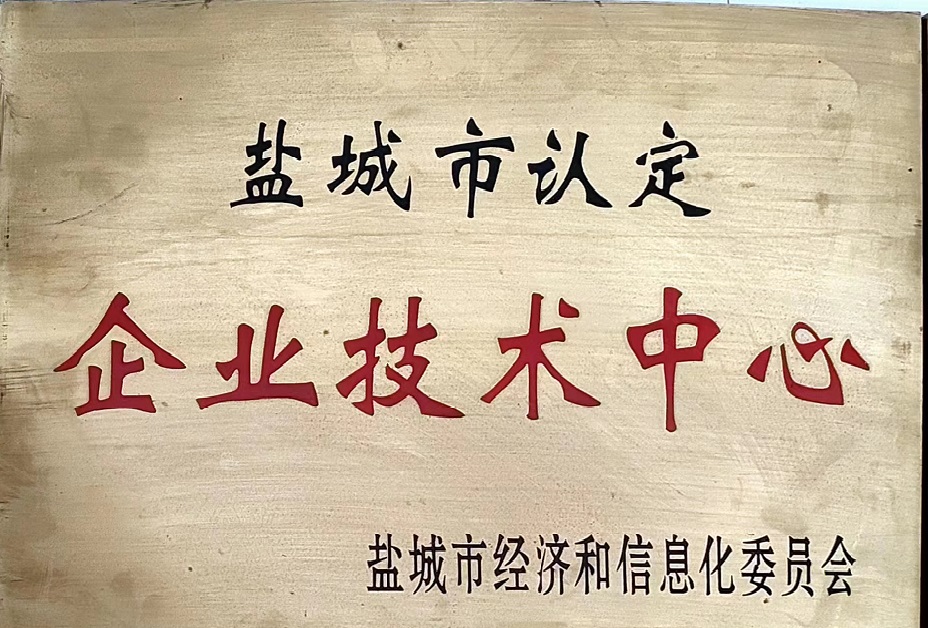 盐城市认定
企业技术中心
盐城市经济和信息化委员会